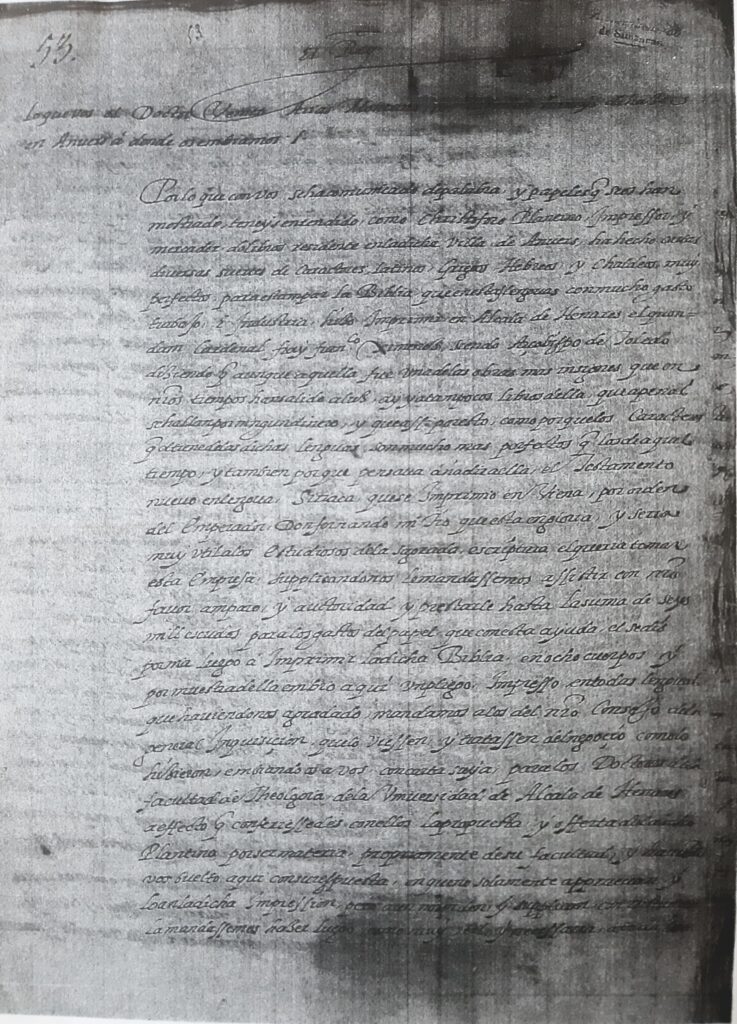 53.
53
El Rey
Archivo General de Simancas
Lo que vos el Doctor Benito Arias Montano
en Anvers á donde os embiamos
Por lo que con vos se ha comunicado de palabra y papeles q̃ se os han
mostrado, teneys entendido, como Christoforo Plantino, Impressor, y
mercader de libros residente en la dicha Villa de Anvers, ha hecho
diversas suertes de Caracteres, latinos, Griegos Hebreos, y Chaldeos, muy
perfectos para estampar la Biblia que en estas lenguas con mucho gasto
trabajo, é Industria, hizo Imprimir en Alcala de Henares el quon-
dam Cardenal fray fran.co Ximenes, siendo Arçobispo de Toledo
diziendo q̃ aunque aquella fue una de las obras mas insignes, que en
nr̃os tiempos han salido a luz, ay ya tan pocos libros della, que apenas
se hallan por ningun dinero, y que assi por esto, como porque los Caracteres
q̃ el tiene de las dichas lenguas, son mucho mas perfectos q̃ los de aquel
tiempo, y tambien porque pensava añadir a ella, el Testamento
nuevo en lengua Siriaca, que se Imprimio en Viena, por orden
del Emperador Don fernando mi tio que esta en gloria, y seria
muy util a los Estudiosos de la sagrada escriptura, el queria tomar
esta Empresa, supplicandonos le mandassemos assistir con nr̃o
favor, amparo, y autoridad, y prestarle hasta la suma de seys
mil escudos para los gastos del papel, que con esta ayuda, el se dis
pornia luego a Imprimir la dicha Biblia, en ocho cuerpos y
por muestra della embio aqui un pliego, Impresso en todas lenguas
que haviendonos agradado, mandamos a los del nr̃o Consejo de la
general Inquisicion, que lo viessen, y tratassen del negocio como lo
hizieron, embiandoos a vos, con carta suya, para los Doctores de la
facultad de Theologia, de la Universidad de Alcala de Henares
a effecto q̃ confiriessedes con ellos la propuesta, y offerta del dicho
Plantino por ser materia, propriamente de su facultad, y haviendo
vos buelto aqui con su respuesta, en que no solamente apruevan, y
loan la dicha Impression, pero aun nos piden, y supplican
la mandassemos hazer luego como muy util y necessaria,